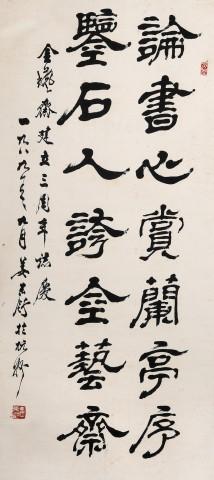 論書心賞蘭亭序
鑒石人誇金藝齋
金藝齋建立三周年誌慶
一九八九年九月姜東舒於杭州